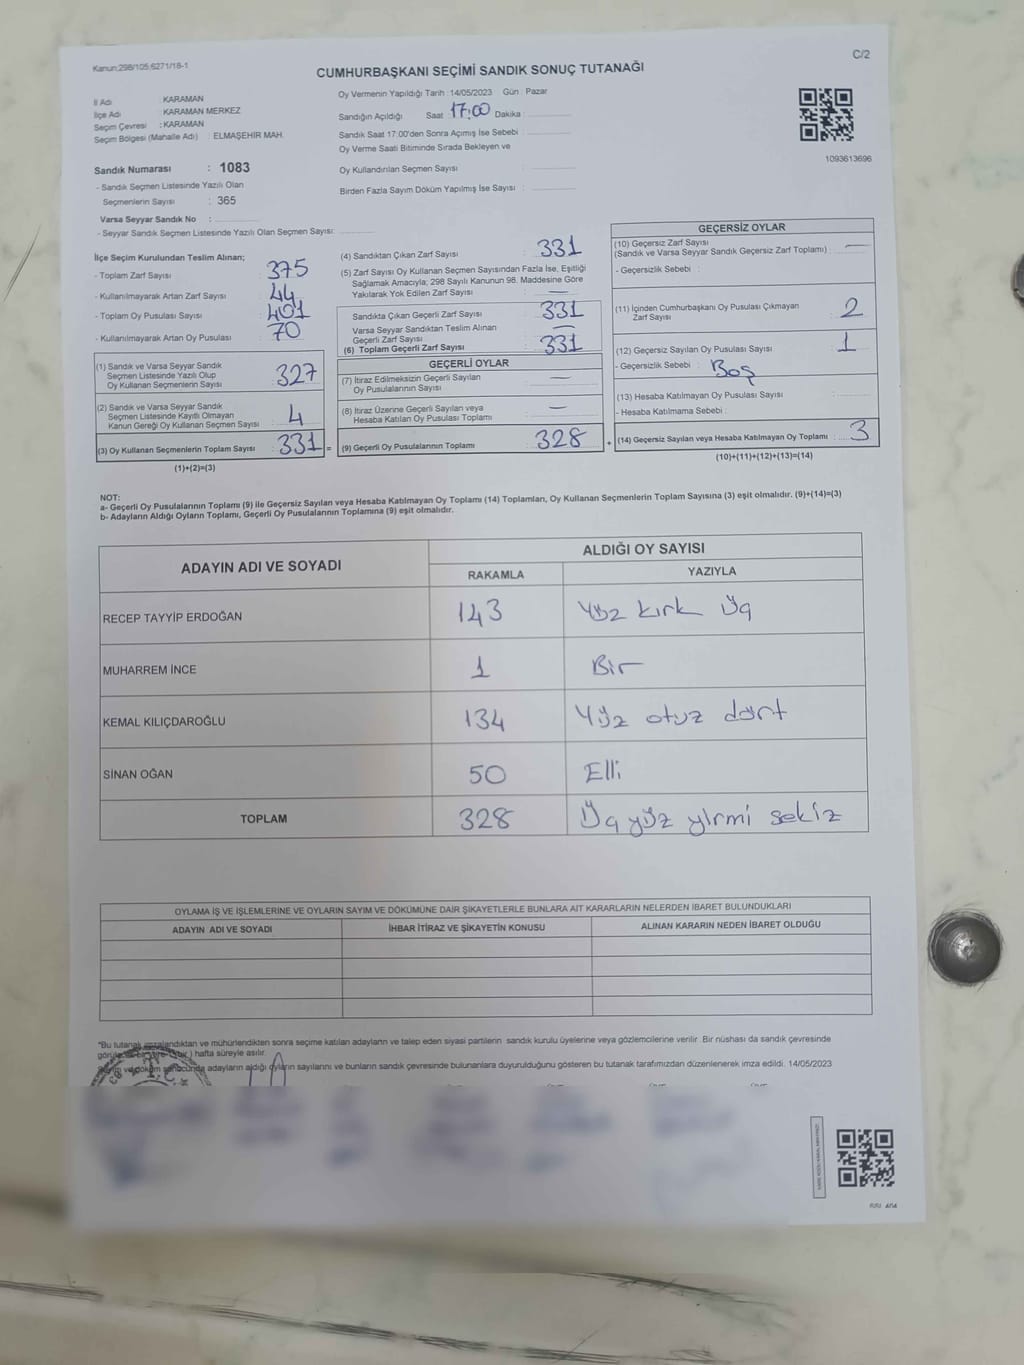 Kanun:298/105,6271/18-1
C/2
CUMHURBAŞKANI SEÇİMİ SANDIK SONUÇ TUTANAĞI
İl Adı : KARAMAN
İlçe Adı : KARAMAN MERKEZ
Seçim Çevresi : KARAMAN
Seçim Bölgesi (Mahalle Adı) : ELMAŞEHİR MAH.
Sandık Numarası : 1083
- Sandık Seçmen Listesinde Yazılı Olan
Seçmenlerin Sayısı : 365
Varsa Seyyar Sandık No :
- Seyyar Sandık Seçmen Listesinde Yazılı Olan Seçmen Sayısı:
Oy Vermenin Yapıldığı Tarih : 14/05/2023 Gün : Pazar
Sandığın Açıldığı Saat : 17:00 Dakika :
Sandık Saat 17:00'den Sonra Açımış İse Sebebi :
Oy Verme Saati Bitiminde Sırada Bekleyen ve
Oy Kullandırılan Seçmen Sayısı :
Birden Fazla Sayım Döküm Yapılmış İse Sayısı :
1093613696
İlçe Seçim Kurulundan Teslim Alınan;
- Toplam Zarf Sayısı : 375
- Kullanılmayarak Artan Zarf Sayısı : 44
- Toplam Oy Pusulası Sayısı : 401
- Kullanılmayarak Artan Oy Pusulası : 70
(1) Sandık ve Varsa Seyyar Sandık
Seçmen Listesinde Yazılı Olup
Oy Kullanan Seçmenlerin Sayısı : 327
(2) Sandık ve Varsa Seyyar Sandık
Seçmen Listesinde Kayıtlı Olmayan
Kanun Gereği Oy Kullanan Seçmen Sayısı : 4
(3) Oy Kullanan Seçmenlerin Toplam Sayısı : 331 =
(1)+(2)=(3)
(4) Sandıktan Çıkan Zarf Sayısı : 331
(5) Zarf Sayısı Oy Kullanan Seçmen Sayısından Fazla İse, Eşitliği
Sağlamak Amacıyla, 298 Sayılı Kanunun 98. Maddesine Göre
Yakılarak Yok Edilen Zarf Sayısı : —
Sandıkta Çıkan Geçerli Zarf Sayısı : 331
Varsa Seyyar Sandıktan Teslim Alınan
Geçerli Zarf Sayısı : —
(6) Toplam Geçerli Zarf Sayısı : 331
GEÇERLİ OYLAR
(7) İtiraz Edilmeksizin Geçerli Sayılan
Oy Pusulalarının Sayısı : —
(8) İtiraz Üzerine Geçerli Sayılan veya
Hesaba Katılan Oy Pusulası Toplamı : —
(9) Geçerli Oy Pusulalarının Toplamı : 328 +
GEÇERSİZ OYLAR
(10) Geçersiz Zarf Sayısı : —
(Sandık ve Varsa Seyyar Sandık Geçersiz Zarf Toplamı)
- Geçersizlik Sebebi :
(11) İçinden Cumhurbaşkanı Oy Pusulası Çıkmayan
Zarf Sayısı : 2
(12) Geçersiz Sayılan Oy Pusulası Sayısı : 1
- Geçersizlik Sebebi : Boş
(13) Hesaba Katılmayan Oy Pusulası Sayısı :
- Hesaba Katılmama Sebebi :
(14) Geçersiz Sayılan veya Hesaba Katılmayan Oy Toplamı : 3
(10)+(11)+(12)+(13)=(14)
NOT:
a- Geçerli Oy Pusulalarının Toplamı (9) ile Geçersiz Sayılan veya Hesaba Katılmayan Oy Toplamı (14) Toplamları, Oy Kullanan Seçmenlerin Toplam Sayısına (3) eşit olmalıdır. (9)+(14)=(3)
b- Adayların Aldığı Oyların Toplamı, Geçerli Oy Pusulalarının Toplamına (9) eşit olmalıdır.
ADAYIN ADI VE SOYADI ALDIĞI OY SAYISI
RAKAMLA YAZIYLA
RECEP TAYYİP ERDOĞAN 143 Yüz kırk üç
MUHARREM İNCE 1 Bir
KEMAL KILIÇDAROĞLU 134 Yüz otuz dört
SİNAN OĞAN 50 Elli
TOPLAM 328 Üç yüz yirmi sekiz
OYLAMA İŞ VE İŞLEMLERİNE VE OYLARIN SAYIM VE DÖKÜMÜNE DAİR ŞİKAYETLERLE BUNLARA AİT KARARLARIN NELERDEN İBARET BULUNDUKLARI
ADAYIN ADI VE SOYADI İHBAR İTİRAZ VE ŞİKAYETİN KONUSU ALINAN KARARIN NEDEN İBARET OLDUĞU
"Bu tutanak imzalandıktan ve mühürlendikten sonra seçime katılan adayların ve talep eden siyasi partilerin sandık kurulu üyelerine veya gözlemcilerine verilir. Bir nüshası da sandık çevresinde
hafta süreyle asılır.
adayların aldığı oyların sayılarını ve bunların sandık çevresinde bulunanlara duyurulduğunu gösteren bu tutanak tarafımızdan düzenlenerek imza edildi. 14/05/2023